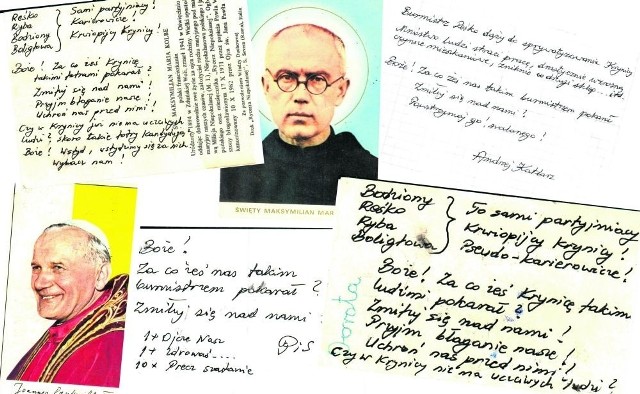 Reśko
Ryba
Bodziony
Boligłowa
Sami partyjniacy!
Karierowicze!
Krwiopijcy Krynicy!
Boże! Za co żeś Krynicę
takimi totrami pokarał?
Zmiłuj się nad nami!
Przyjm błaganie nasze!
Uchroń nas przed nimi!
Czy w Krynicy już nie ma uczciwych
ludzi? skoro takie totry kandydują
Boże! Wstyd, wstydzimy się za nich
wybacz nam!
MAKSYMILIAN MARIA KOLBE
polski franciszkanin
ŚWIĘTY MAKSYMILIAN MAR
Burmistrz Reśko dąży do sprywatyzowania Krynicy
Mnóstwo ludzi straci pracę, drastycznie wzrosną
czynsze mieszkaniowe, znikną w dotyji sklep... itd.
Boże! Za co żeś nas takim burmistrzem pokarał
Zmiłuj się nad nami!
Powstrzymaj go! srebrnego!
Andrzej Katlarz
Boże!
Za co żeś nas takim
burmistrzem pokarał?
Zmiłuj się nad nami
1+ Ojcze Nasz
1+ Zdrowaś....
10x Precz szatanie
Bodziony
Reśko
Ryba
Boligłowa
To sami partyjniacy
Krwiopijcy Krynicy!
Pseudo-karierowicze!
Boże! Za co żeś Krynicę takim
ludźmi pokarał?
Zmiłuj się nad nami!
Przyjm błaganie nasze!
Uchroń nas przed nimi!
Czy w Krynicy nie ma uczciwych ludzi?
Dorota